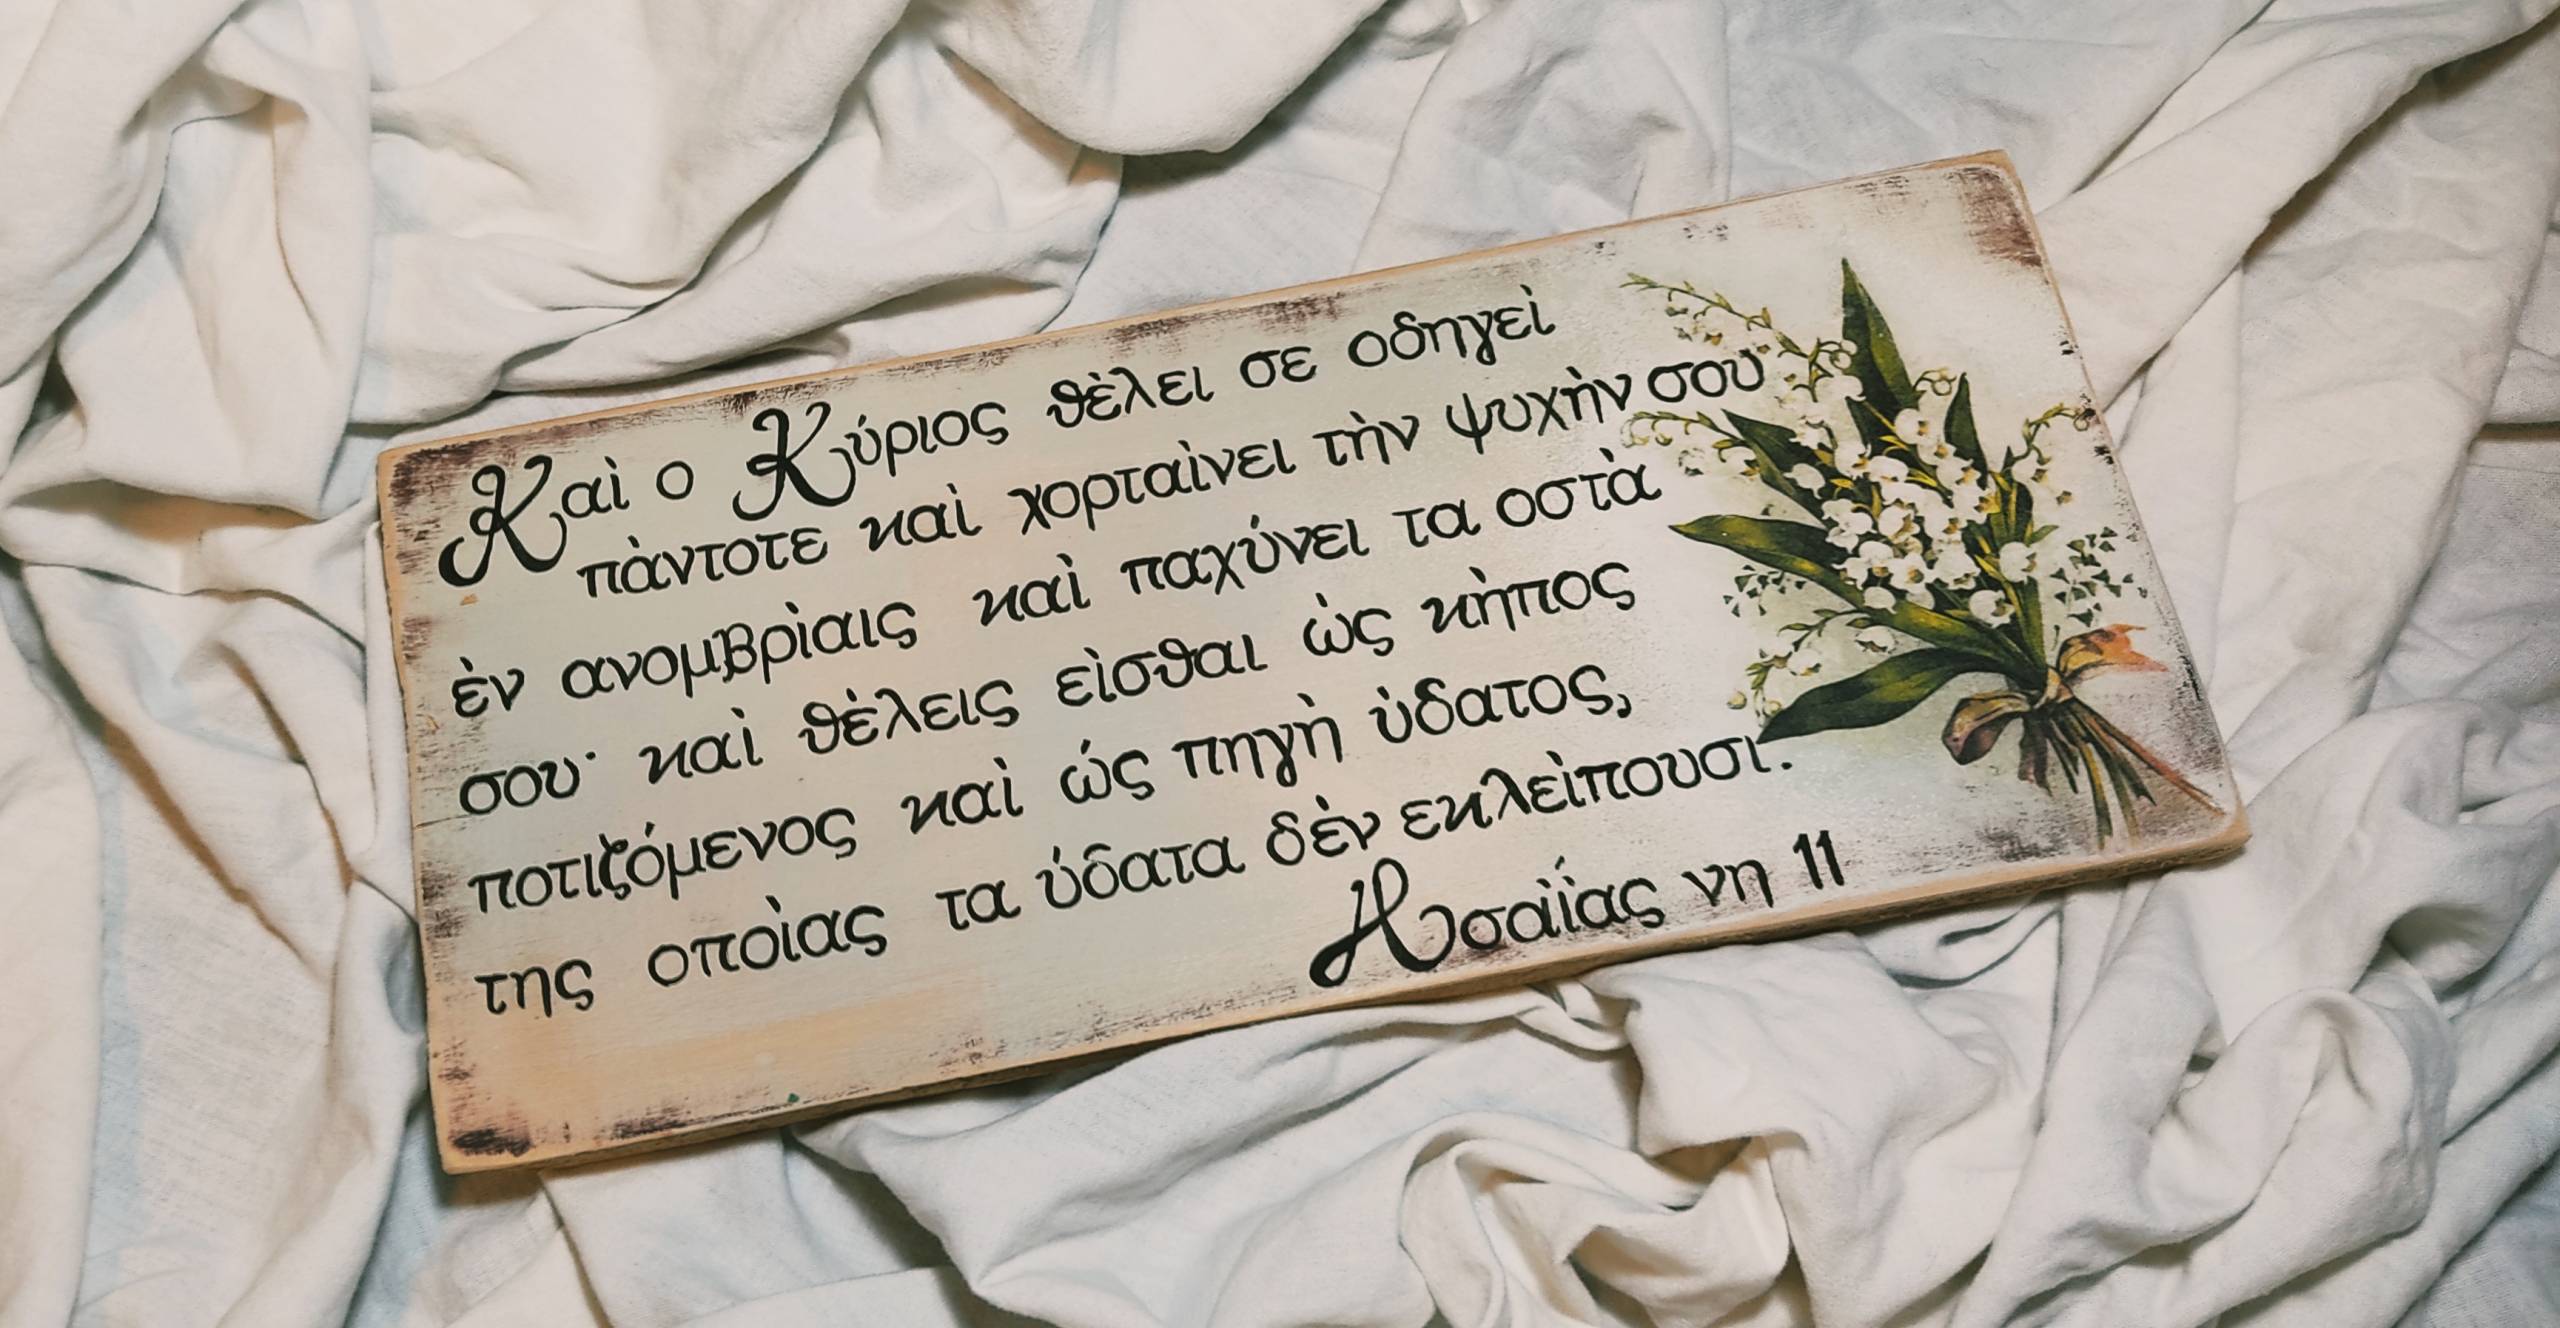 Καὶ ο Κύριος θὲλει σε οδηγεὶ
πὰντοτε καὶ χορταὶνει τὴν ψυχὴν σου
ἐν ανομβρὶαις καὶ παχύνει τα οστὰ
σου· καὶ θὲλεις εὶσθαι ὡς κὴπος
ποτιζόμενος καὶ ὡς πηγὴ ὑδατος,
της οποὶας τα ύδατα δὲν εκλεὶπουσι.
Ησαὶΐας νη 11